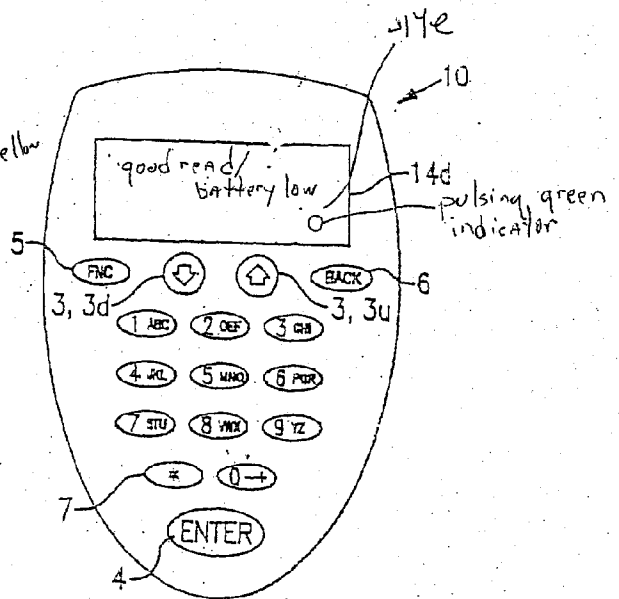 14e
10
ellow
good read/
battery low
14d
pulsing green
indicator
5
FNC
BACK
6
3, 3d
3, 3u
1 ABC
2 DEF
3 GHI
4 JKL
5 MNO
6 PQR
7 STU
8 VWX
9 YZ
7
*
0
ENTER
4